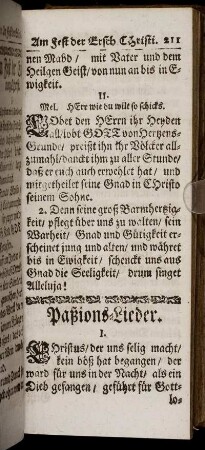 Am Fest der Ersch Christi. 211
nen Mahd/ mit Vater und dem
Heilgen Geist/ von nun an bis in E-
wigkeit.
II.
Mel. HErr wie du wilt so schicks.
LObet den HErrn ihr Heyden
all/ lobt GOTT von Hertzens-
Grunde/ preißt ihn ihr Völcker all-
zumahl/ danckt ihm zu aller Stunde/
daß er euch auch erwehlet hat/ und
mitgetheilet seine Gnad in CHristo
seinem Sohne.
2. Denn seine groß Barmhertzig-
keit/ pflegt über uns zu walten/ sein
Warheit/ Gnad und Gütigkeit er-
scheinet jung und alten/ und währet
bis in Ewigkeit/ schenckt uns aus
Gnad die Seeligkeit/ drum singet
Alleluja!
Paßions-Lieder.
I.
CHristus/ der uns selig macht/
kein böß hat begangen/ der
ward für uns in der Nacht/ als ein
Dieb gefangen/ geführt für Gott-
lo-